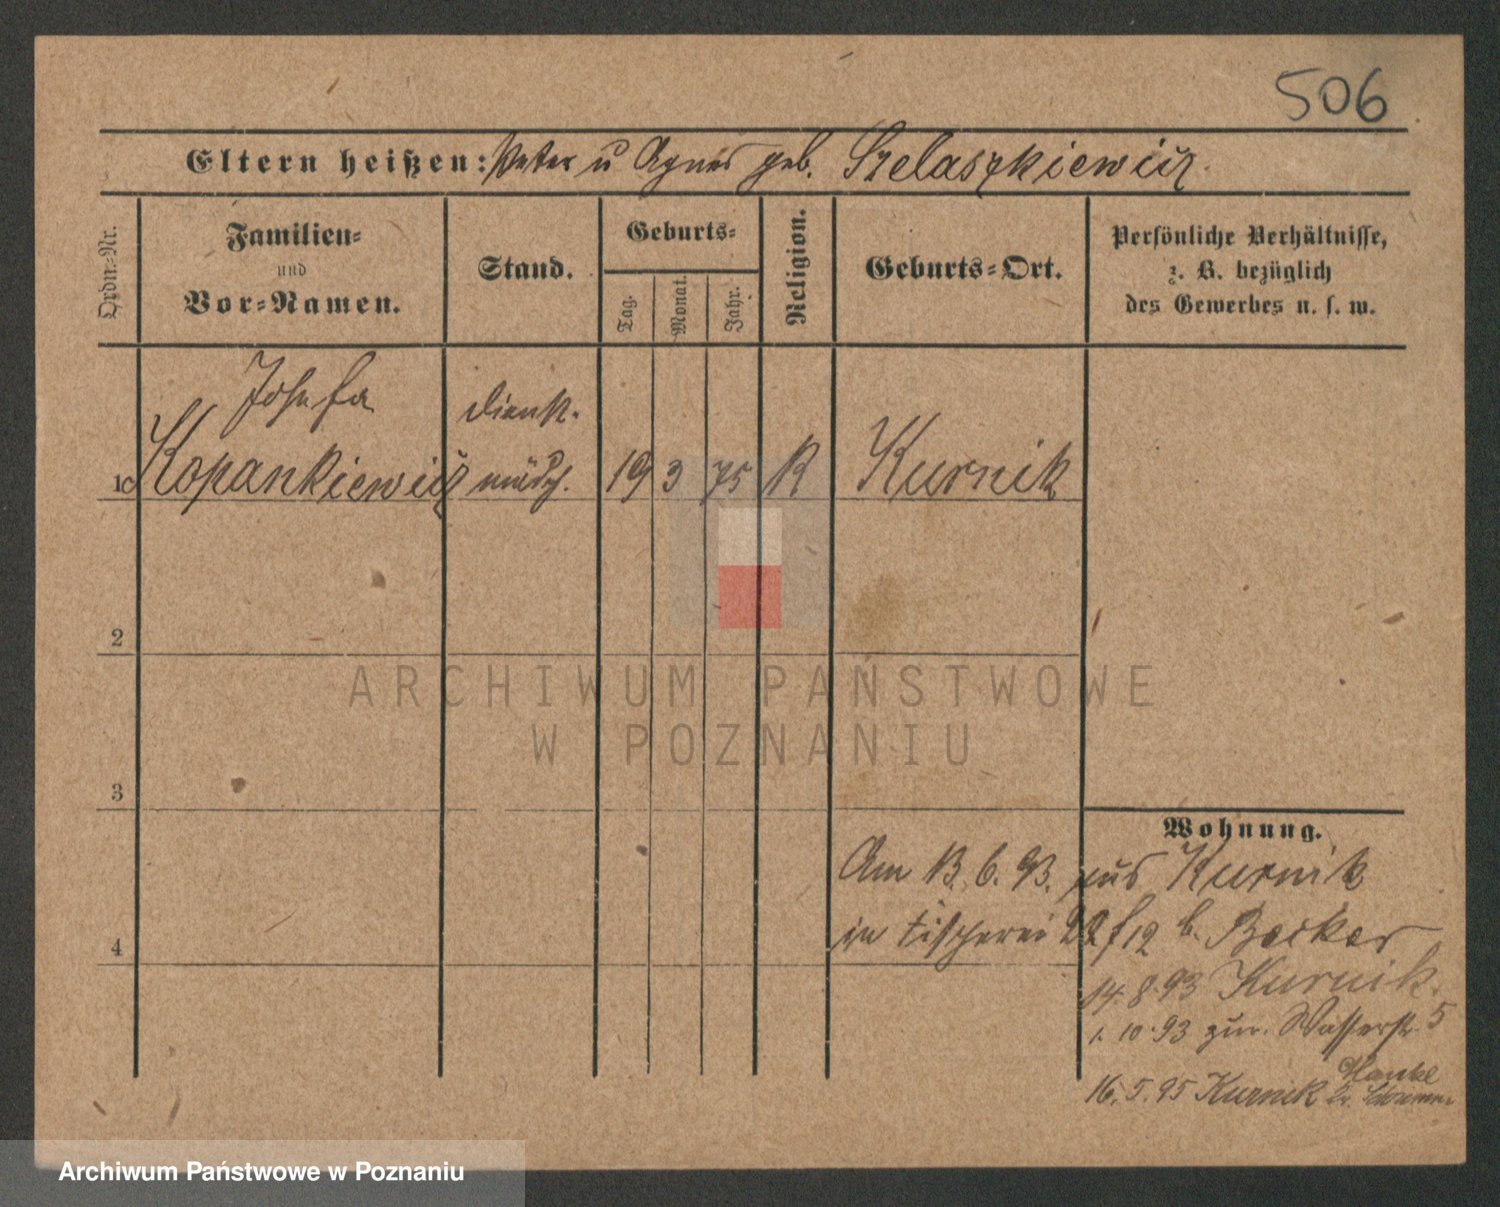 506
Eltern heißen: Peter u Agnes geb. Szelaszkiewicz.
Ordn.-Nr.
Familien-
und
Vor-Namen.
Stand.
Geburts-
Tag.
Monat.
Jahr.
Religion.
Geburts-Ort.
Persönliche Verhältnisse,
z. B. bezüglich
des Gewerbes u. s. w.
Josefa
Kopankiewicz
Dienst-
mädch.
1
19 3 75 K
Kurnik
2
ARCHIWUM PAŃSTWOWE
W POZNANIU
3
Wohnung.
Am 13. 6. 93. aus Kurnik
in Fischerei b. Becker
4
14. 8. 93 Kurnik.
1. 10. 93 zur. Wasserstr. 5
16. 5. 95 Kurnik
Archiwum Państwowe w Poznaniu